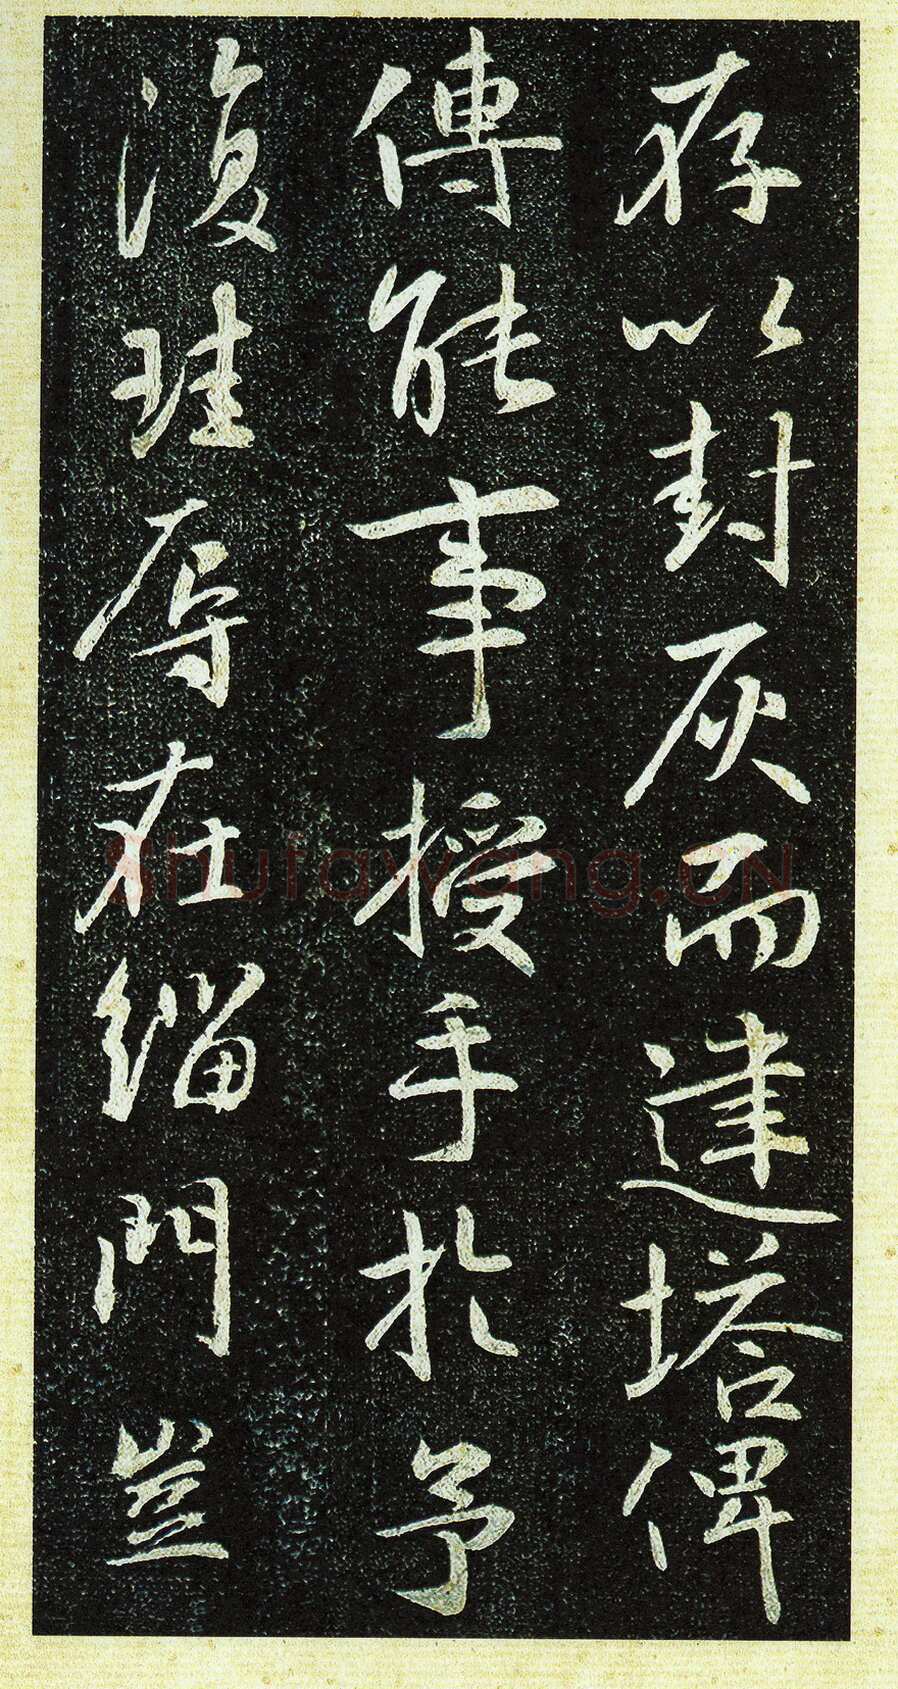 存以封灰而建塔俾
傳能事授手於予
復珪辱在緇門豈
Shufawang.CN